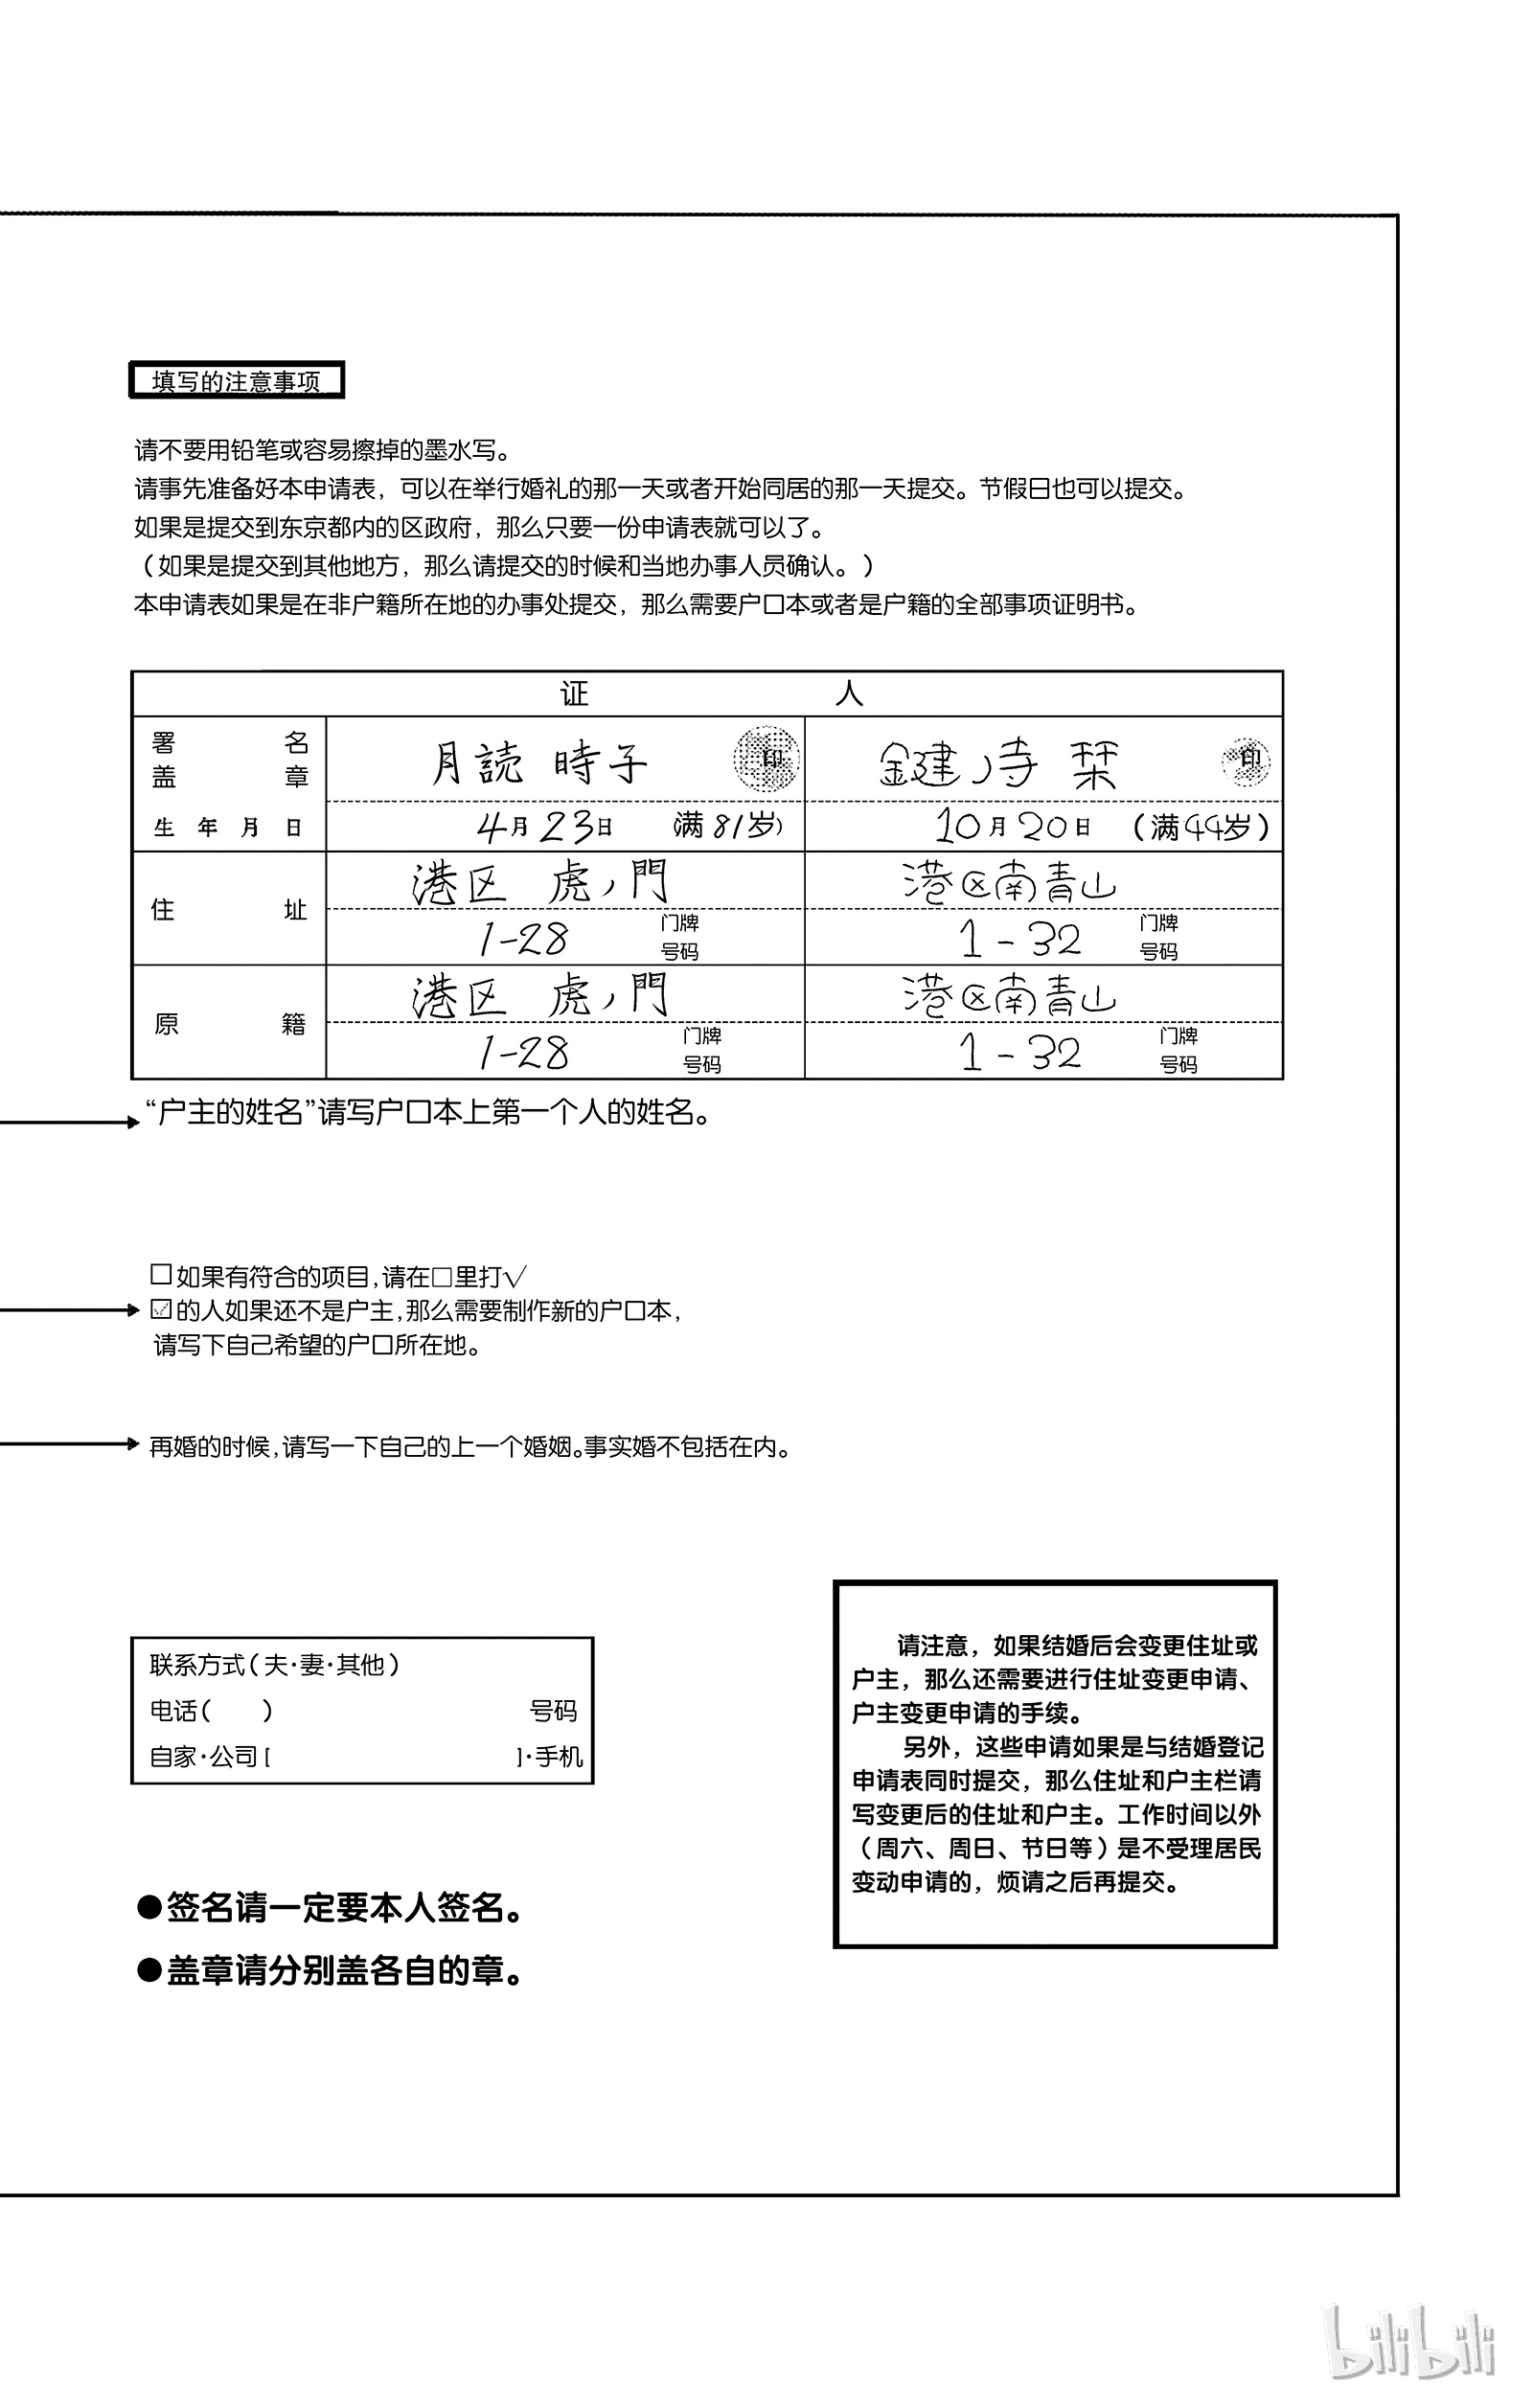 填写的注意事项
请不要用铅笔或容易擦掉的墨水写。
请事先准备好本申请表，可以在举行婚礼的那一天或者开始同居的那一天提交。节假日也可以提交。
如果是提交到东京都内的区政府，那么只要一份申请表就可以了。
（如果是提交到其他地方，那么请提交的时候和当地办事人员确认。）
本申请表如果是在非户籍所在地的办事处提交，那么需要户口本或者是户籍的全部事项证明书。
证 人
署 名
盖 章
月読 時子 印
鍵ノ寺 栞 印
生 年 月 日
4月23日 (满81岁)
10月20日 (满44岁)
住 址
港区 虎ノ門
港区南青山
1-28 门牌号码
1-32 门牌号码
原 籍
港区 虎ノ門
港区南青山
1-28 门牌号码
1-32 门牌号码
“户主的姓名”请写户口本上第一个人的姓名。
□如果有符合的项目,请在□里打√
☑的人如果还不是户主,那么需要制作新的户口本,
请写下自己希望的户口所在地。
再婚的时候,请写一下自己的上一个婚姻。事实婚不包括在内。
联系方式(夫·妻·其他)
电话( ) 号码
自家·公司[ ]·手机
请注意，如果结婚后会变更住址或
户主，那么还需要进行住址变更申请、
户主变更申请的手续。
另外，这些申请如果是与结婚登记
申请表同时提交，那么住址和户主栏请
写变更后的住址和户主。工作时间以外
（周六、周日、节日等）是不受理居民
变动申请的，烦请之后再提交。
●签名请一定要本人签名。
●盖章请分别盖各自的章。
bilibili